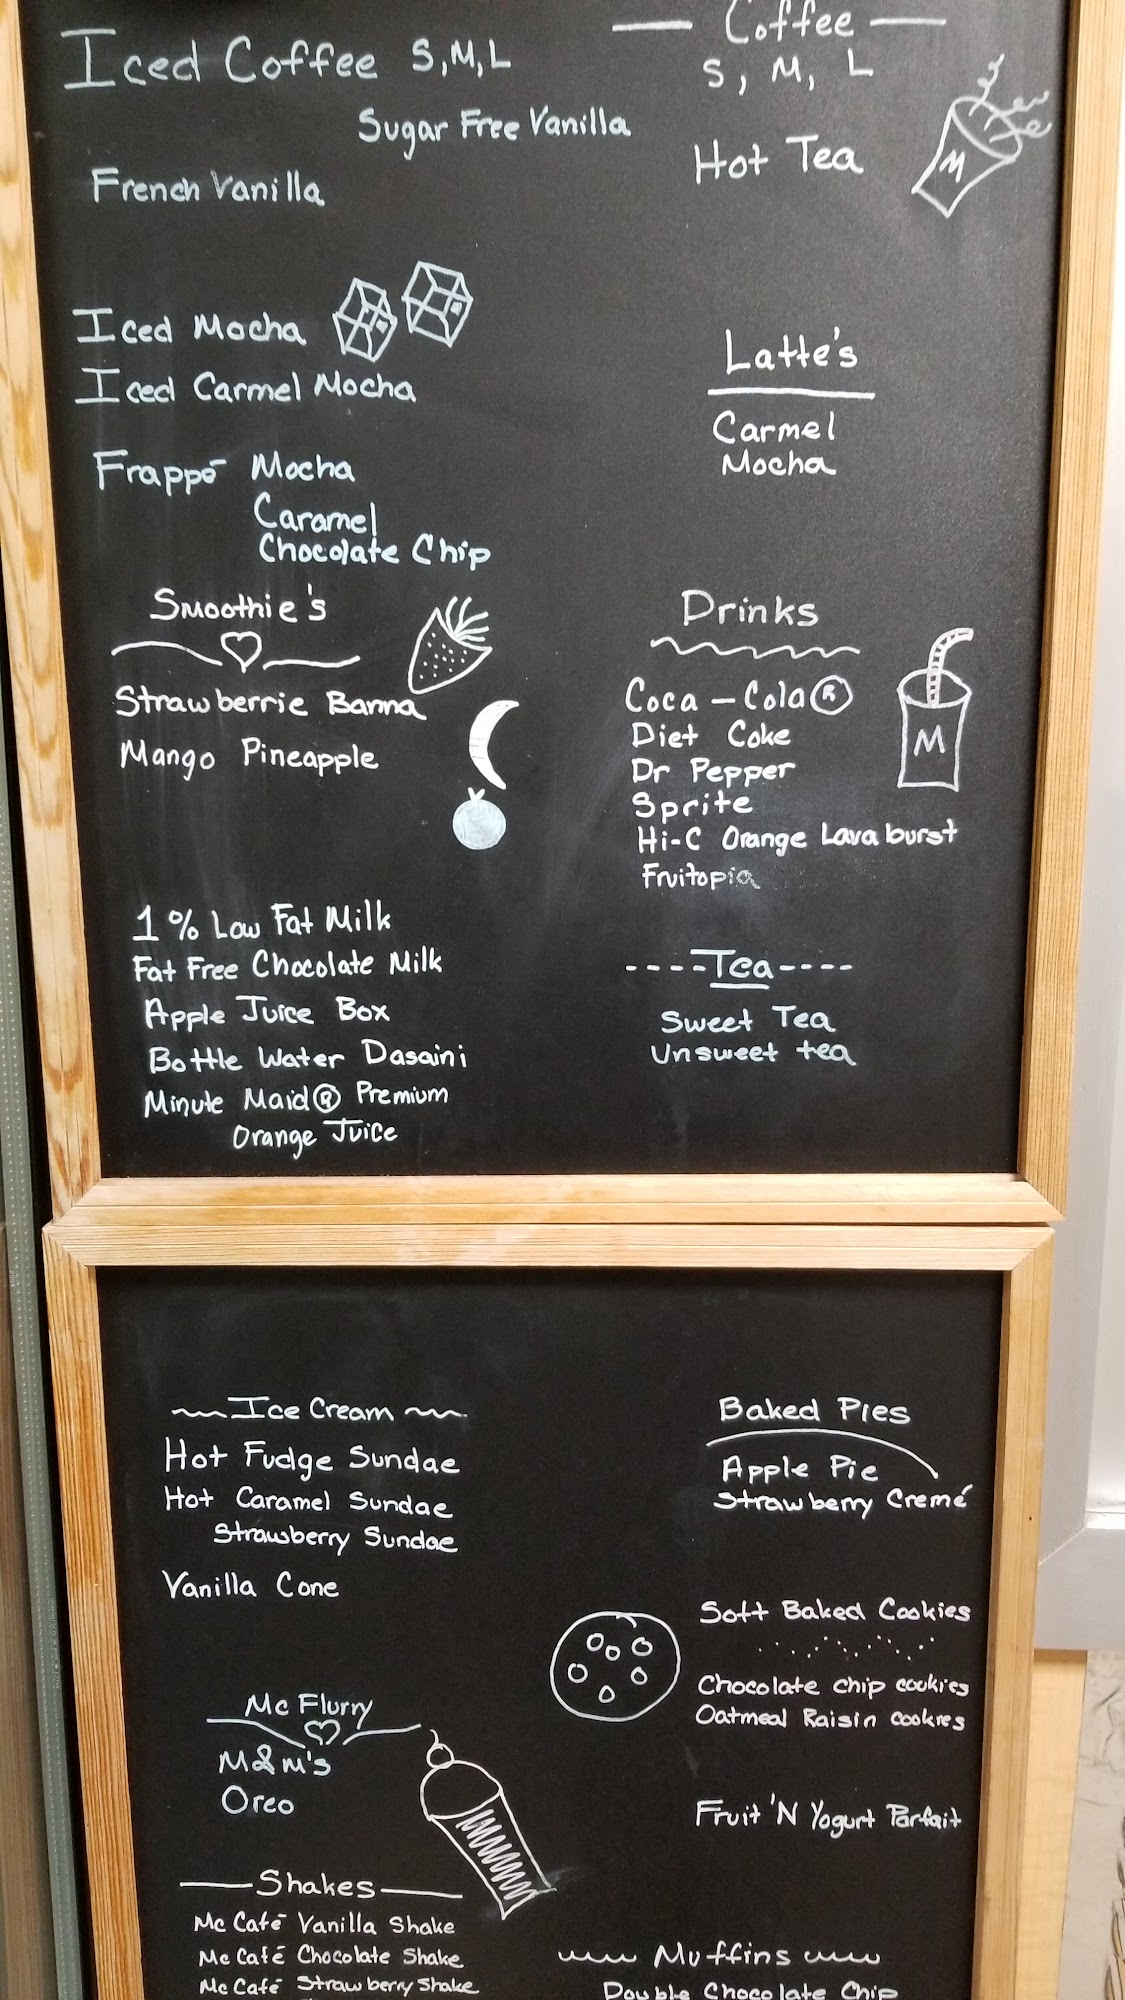 Iced Coffee S,M,L
Sugar Free Vanilla
French Vanilla
Iced Mocha
Iced Carmel Mocha
Frappé Mocha
Caramel
Chocolate Chip
Coffee
S, M, L
Hot Tea
M
Latte's
Carmel
Mocha
Smoothie's
Strawberrie Banna
Mango Pineapple
Drinks
Coca-Cola®
Diet Coke
Dr Pepper
Sprite
Hi-C Orange Lavaburst
Fruitopia
M
1% Low Fat Milk
Fat Free Chocolate Milk
Apple Juice Box
Bottle Water Dasaini
Minute Maid® Premium
Orange Juice
----Tea----
Sweet Tea
Unsweet tea
Ice Cream
Hot Fudge Sundae
Hot Caramel Sundae
Strawsberry Sundae
Vanilla Cone
Mc Flurry
M&M's
Oreo
Shakes
Mc Café Vanilla Shake
Mc Café Chocolate Shake
Mc Café Strawberry Shake
Baked Pies
Apple Pie
Strawberry Cremé
Soft Baked Cookies
Chocolate chip cookies
Oatmeal Raisin cookies
Fruit 'N Yogurt Parfait
Muffins
Double Chocolate Chip